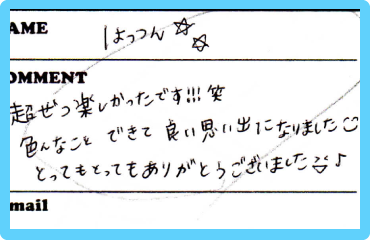 AME
はっつん☆☆
OMMENT
超ぜつ楽しかったです!!!笑
色んなことできて良い思い出になりました
とってもとってもありがとうございました♪
mail